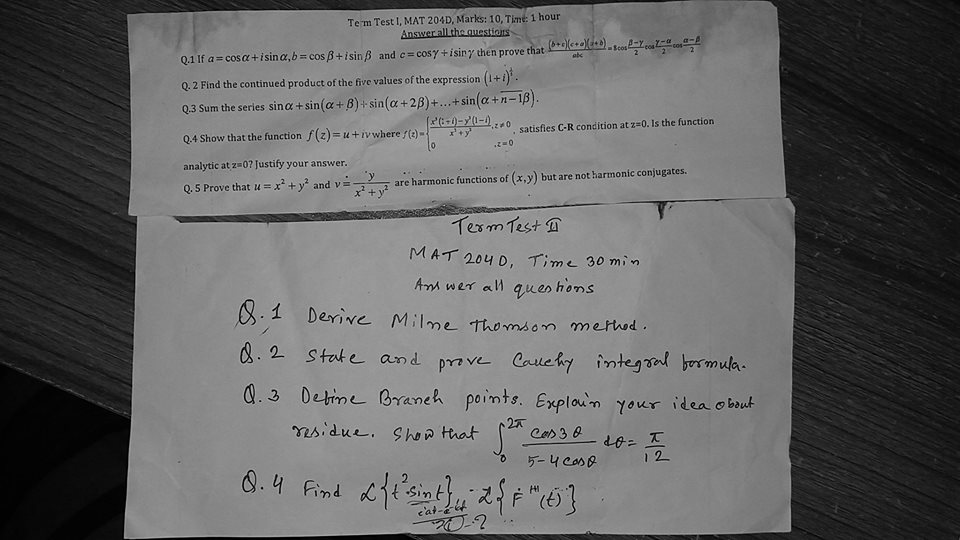 Term Test I, MAT 204D, Marks: 10, Time: 1 hour
Answer all the questions
Q.1 If a = cosα + i sinα, b = cosβ + i sinβ and c = cosγ + i sinγ then prove that (b+c)(c+a)(a+b)/abc = 8cos (β−γ)/2 cos (γ−α)/2 cos (α−β)/2
Q. 2 Find the continued product of the five values of the expression
Q.3 Sum the series sinα + sin(α+β) + sin(α+2β) + ... + sin(α + n−1β).
Q.4 Show that the function f(z) = u + iv where f(z) = { x³(1+i) − y³(1−i) / x² + y² , z ≠ 0 satisfies C-R condition at z=0. Is the function
0 , z = 0
analytic at z=0? Justify your answer.
Q. 5 Prove that u = x² + y² and v = y / x² + y² are harmonic functions of (x, y) but are not harmonic conjugates.
Term Test II
MAT 204D, Time 30 min
Answer all questions
Q.1 Derive Milne Thomson method.
Q.2 State and prove Cauchy integral formula.
Q.3 Define Branch points. Explain your idea about
residue. Show that ∫₀^2π cos3θ / 5−4cosθ dθ = π/12
Q.4 Find ℒ{t² sint}, ℒ{F (t)}